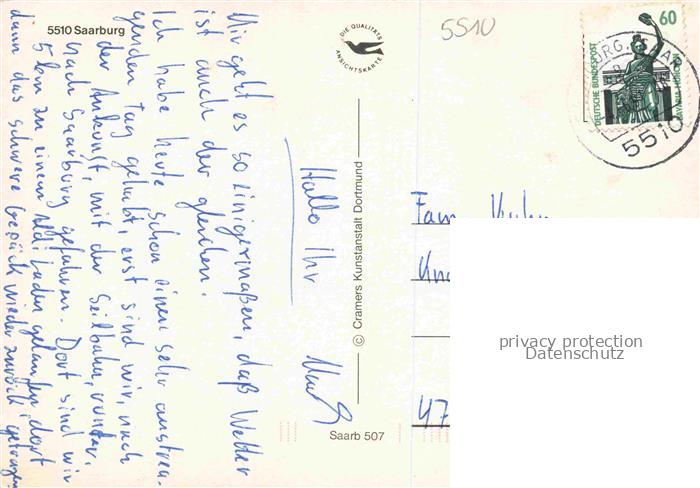 5510 Saarburg
DIE QUALITÄTS
ANSICHTSKARTE
5510
60
DEUTSCHE BUNDESPOST
BAVARIA MÜNCHEN
5510
Hallo Ihr
Mir geht es so einigermaßen, daß Wetter
ist auch der gleichen.
Ich habe heute schon einen sehr anstren-
genden Tag gehabt, erst sind wir, nach
der Ankunft, mit der Seilbahn, runter,
nach Saarburg gefahren. Dort sind wir
5 km zu einem Aldi laden gelaufen, dort
dann das schwere Gepäck wieder zurück getragen
© Cramers Kunstanstalt Dortmund
Saarb 507
Fam
47
privacy protection
Datenschutz